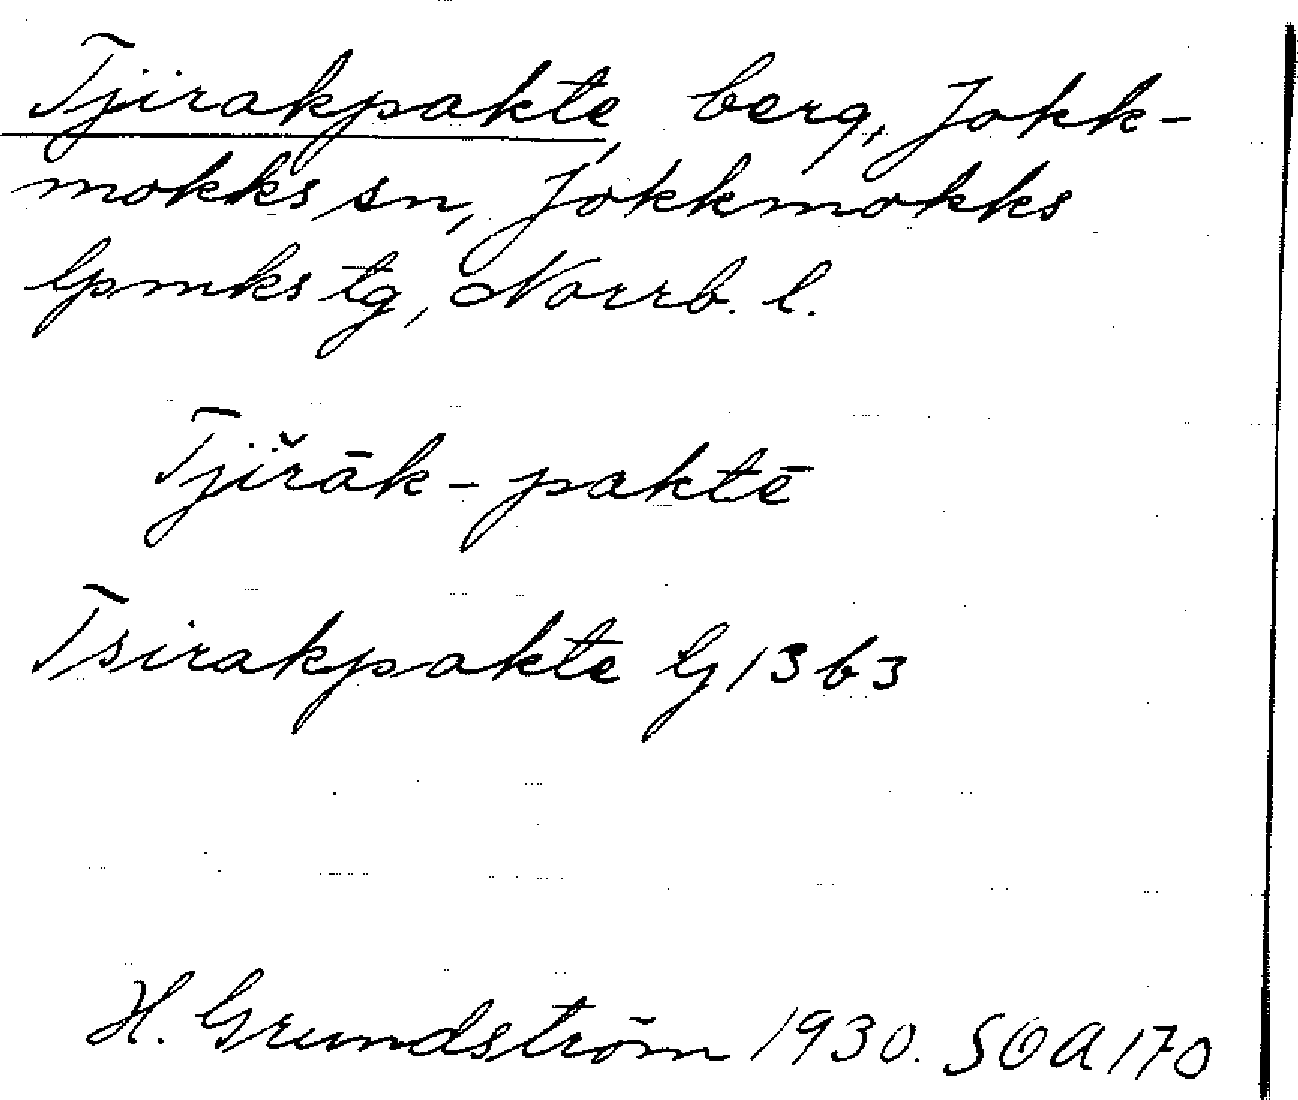 Tjirakpakte, berg, Jokk-
mokks sn, Jokkmokks
lpmks tg, Norrb. l.
Tjiřāk-paktē
Tsirakpakte Lj 13 b 3
H. Grundström 1930. SOA 170